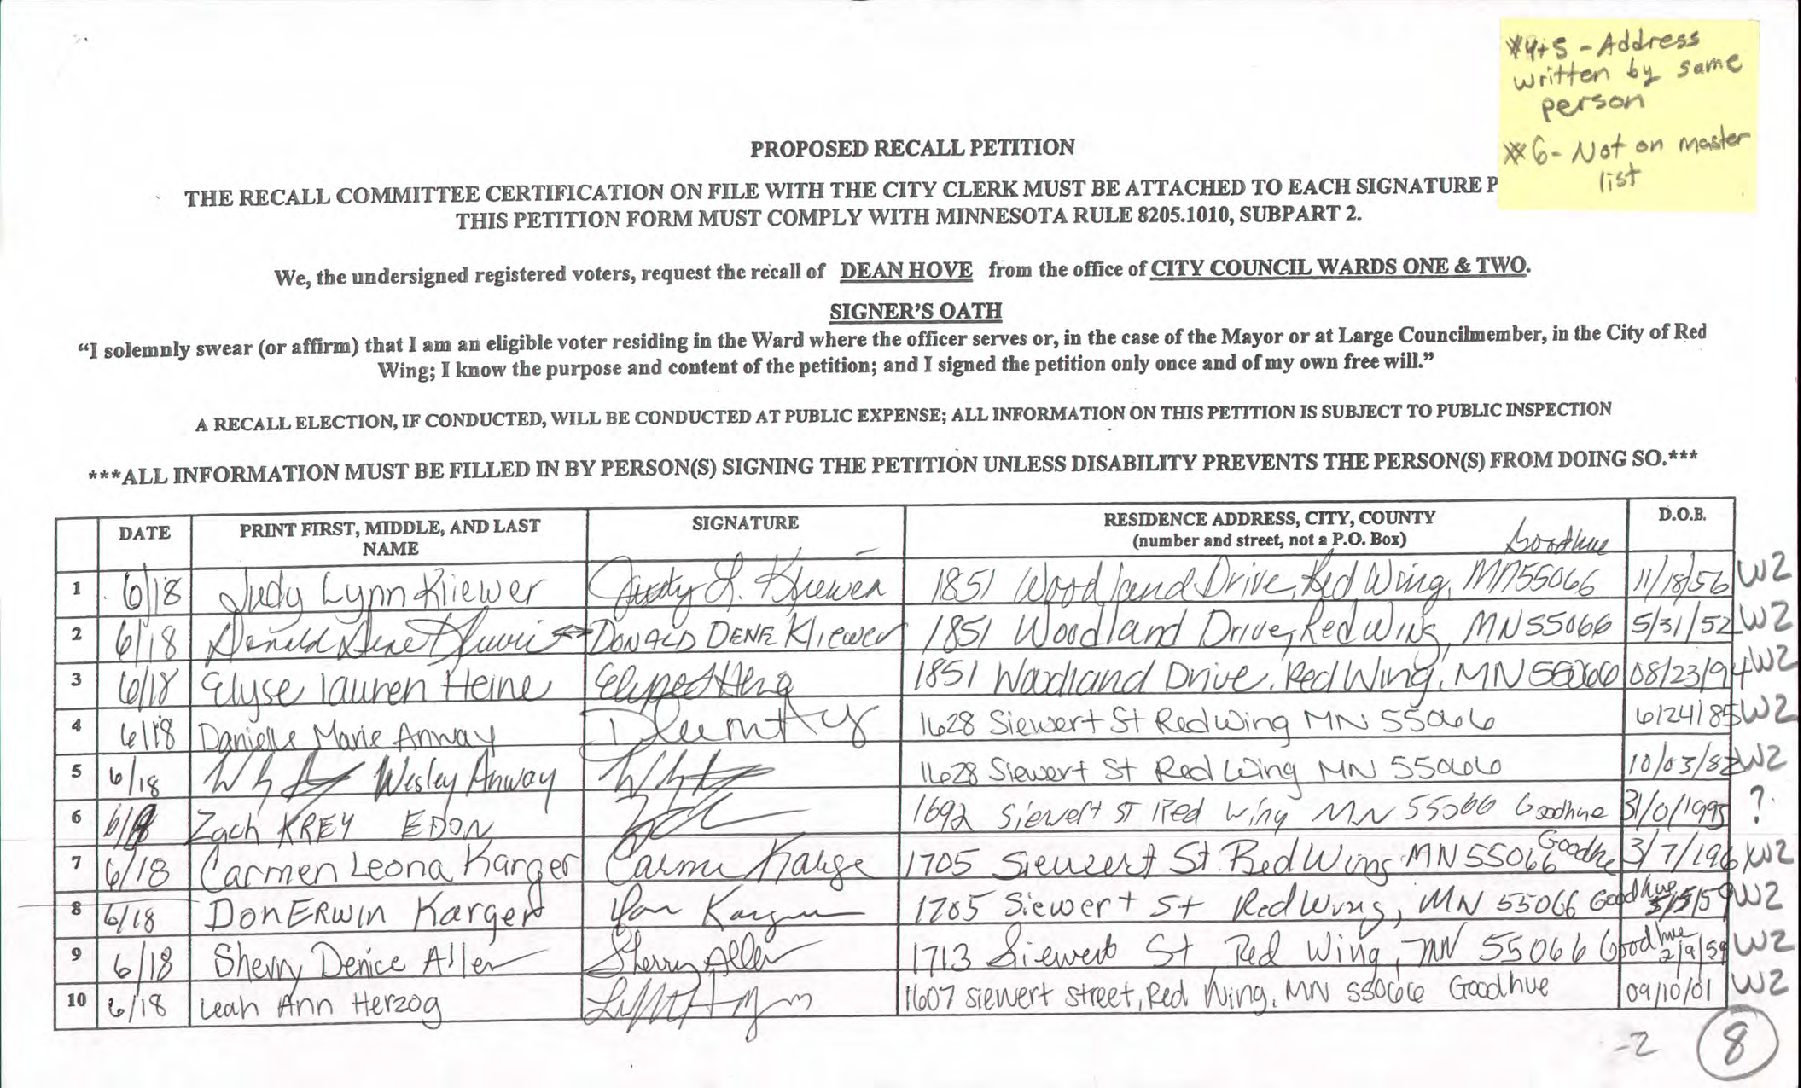 *4+5 - Address
written by same
person
*6- Not on master
list
PROPOSED RECALL PETITION
THE RECALL COMMITTEE CERTIFICATION ON FILE WITH THE CITY CLERK MUST BE ATTACHED TO EACH SIGNATURE P
THIS PETITION FORM MUST COMPLY WITH MINNESOTA RULE 8205.1010, SUBPART 2.
We, the undersigned registered voters, request the recall of DEAN HOVE from the office of CITY COUNCIL WARDS ONE & TWO.
SIGNER'S OATH
“I solemnly swear (or affirm) that I am an eligible voter residing in the Ward where the officer serves or, in the case of the Mayor or at Large Councilmember, in the City of Red
Wing; I know the purpose and content of the petition; and I signed the petition only once and of my own free will.”
A RECALL ELECTION, IF CONDUCTED, WILL BE CONDUCTED AT PUBLIC EXPENSE; ALL INFORMATION ON THIS PETITION IS SUBJECT TO PUBLIC INSPECTION
***ALL INFORMATION MUST BE FILLED IN BY PERSON(S) SIGNING THE PETITION UNLESS DISABILITY PREVENTS THE PERSON(S) FROM DOING SO.***
DATE PRINT FIRST, MIDDLE, AND LAST NAME SIGNATURE RESIDENCE ADDRESS, CITY, COUNTY (number and street, not a P.O. Box) D.O.B.
Goodhue
1 6/18 Judy Lynn Kliewer Judy L. Kliewer 1851 Woodland Drive, Red Wing, MN 55066 11/18/56 W2
2 6/18 Donald Dene Kliewer DONALD DENE Kliewer 1851 Woodland Drive, Red Wing MN 55066 5/31/52 W2
3 6/18 Elyse Lauren Heine 1851 Woodland Drive, Red Wing, MN 55066 08/23/94 W2
4 6/18 Danielle Marie Anway 1628 Siewert St Red Wing MN 55066 6/24/85 W2
5 6/18 Wesley Anway 1628 Siewert St Red Wing MN 55066 10/03/82 W2
6 6/18 Zach KREY EDON 1692 Siewert ST Red Wing MN 55066 Goodhue 31/0/1995 ?
7 6/18 Carmen Leona Karger Carmen Karger 1705 Siewert St. Red Wing MN 55066 Goodhue 3/7/196 W2
8 6/18 Don ERWIN Karger Don Karger 1705 Siewert St Red Wing, MN 55066 Goodhue W2
9 6/18 Sherry Denice Allen Sherry Allen 1713 Siewert St Red Wing, MN 55066 Goodhue 2/9/59 W2
10 6/18 Leah Ann Herzog 1607 Siewert street, Red Wing, MN 55066 Goodhue 09/10/01 W2
-2 8